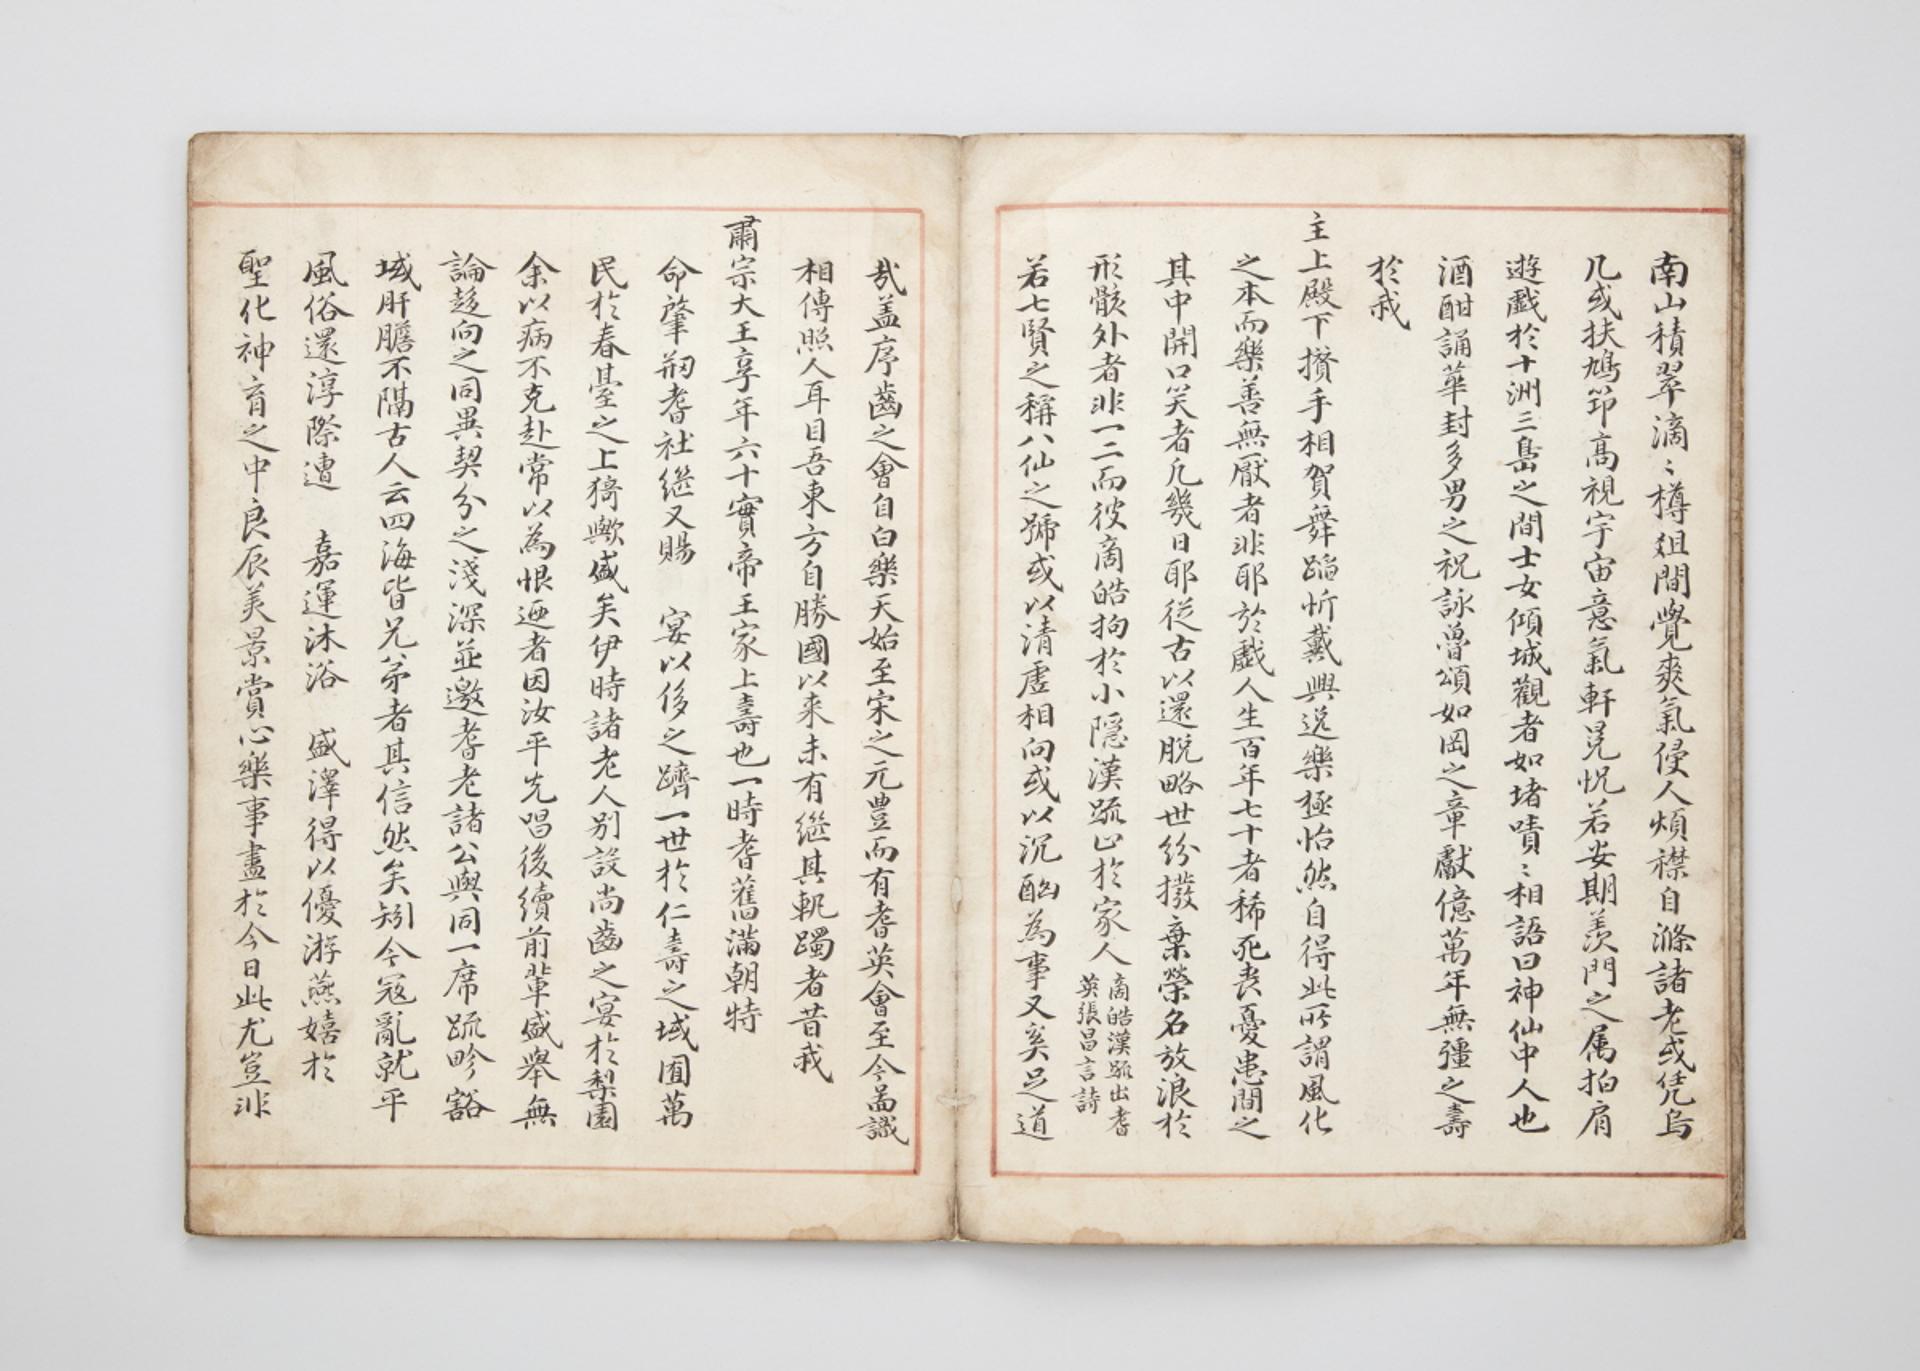 南山積翠滴〻樽俎間覺爽氣侵人煩襟自滌諸老或凭烏
几或扶鳩笻高視宇宙意氣軒晃怳若安期羡門之属拍肩
遊戲於十洲三島之間士女傾城觀者如堵嘖〻相語曰神仙中人也
酒酣誦華封多男之祝詠魯頌如岡之章獻億萬年無彊之壽
於我
主上殿下攢手相賀舜蹈忻戴興逸樂極怡然自得此所謂風化
之本而樂善無厭者非耶於戲人生百年七十者稀死喪憂患間之
其中開口笑者凡幾日耶從古以還脫略世紛撥棄榮名放浪於
形骸外者非一二而彼商皓拘於小隱漢䟽止於家人
商皓漢䟽出耆
英張昌言詩
若七賢之稱八仙之號或以清虛相向或以沉酗為事又奚足道
㢤盖序齒之會自白樂天始至宋之元豊而有耆英會至今畵識
相傳照人耳目吾東方自勝國以来未有継其軌躅者昔我
肅宗大王享年六十實帝王家上壽也一時耆舊滿朝特
命肇剏耆社継又賜 宴以侈之躋一世於仁壽之域囿萬
民於春臺之上猗歟盛矣伊時諸老人別設尚齒之宴於梨園
余以病不克赴常以為恨迺者因汝平先唱後續前軰盛舉無
論趍向之同異契分之淺深並邀耆老諸公與同一席䟽畛豁
域肝膽不隔古人云四海皆兄弟者其信然矣矧今寇亂就平
風俗還淳際遭 嘉運沐浴 盛澤得以優游燕嬉於
聖化神育之中良辰美景賞心樂事盡於今日此尤豈非